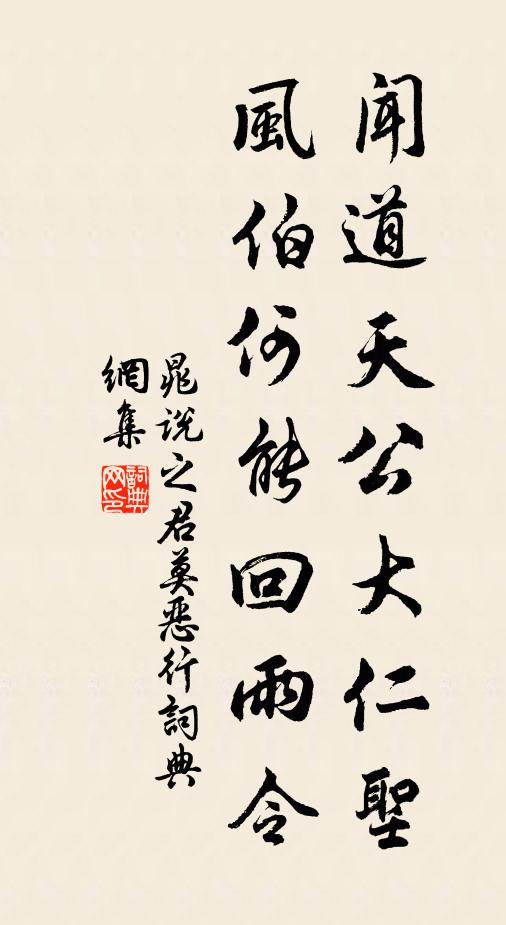 聞道天公大仁聖
風伯何能回雨令
晁說之君莫惡行詞典
網集
詞典網印